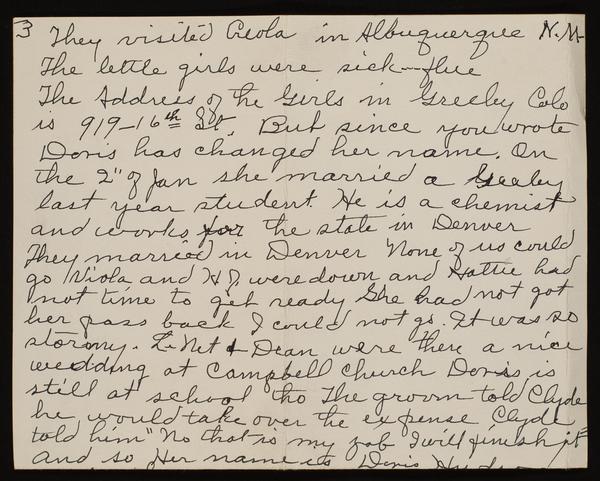 3 They visited Creola in Albuquerque N.M.
The lettle girls were sick—flue
The Address of the Girls in Greeley Colo
is 919-16th St. But since you wrote
Doris has changed her name. On
the 2" of Jan she married a Greeley
last year student. He is a chemist
and works for the state in Denver
They married in Denver None of us could
go Viola and H J. were down and Hattie had
not time to get ready She had not got
her pass back I could not go. It was so
stormy. & Dean were there a nice
wedding at Campbell church Doris is
still at school tho The groom told Clyde
he would take over the expense Clyde
told him "No that is my job I will finish it"
and so Her name is Doris